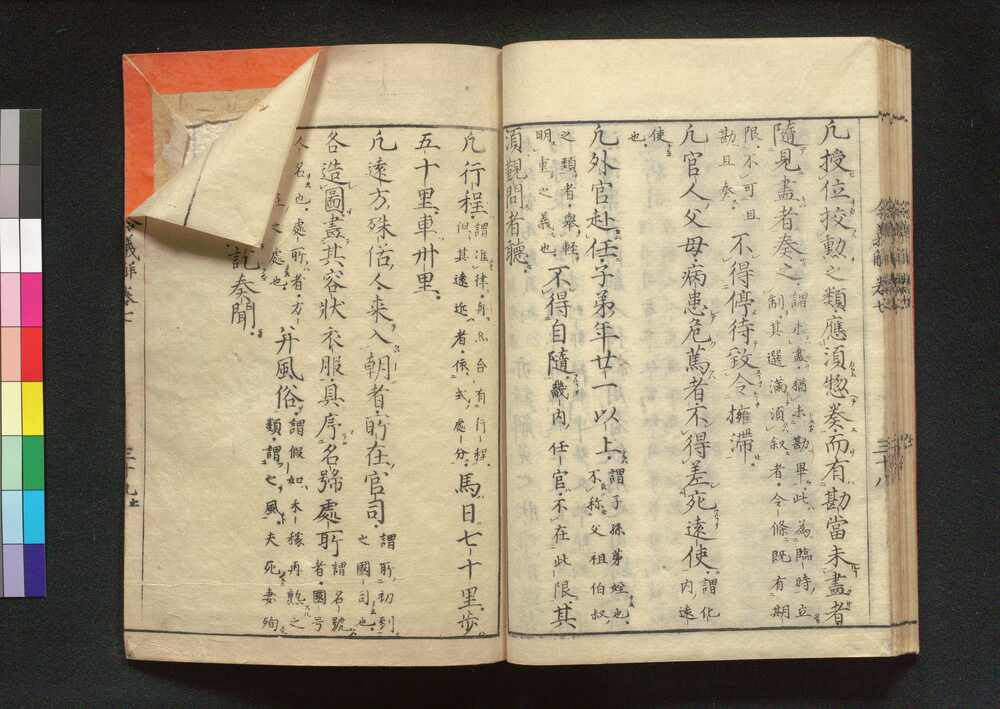 凡授位挍勲之類應湏惣奏而有勘當未盡者
隨見盡者奏之謂未盡猶未勘畢此為臨時立
制其選滿湏叙者令條既有期
限不可且
勘且奏不得停待致令擁滞
凡官人父母病患危篤者不得差死遠使謂化
内遠
使
也
凡外官赴任子弟年廿一以上謂子孫弟姪也
不称父祖伯叔
之類者舉輕
明重之義也不得自隨畿内任官不在此限其
湏觀問者聽
凡行程謂准律身以合有行程
但其遠近者係式處分馬日七十里歩
五十里車卅里
凡遠方殊俗人来入朝者所在官司謂所初到
之國司也
各造圖畫其容状衣服具序名號處所謂名號
者國号
人名也處所者方
之處也并風俗謂假如禾稼再熟之
類謂七風夫死妻殉
訖奏聞
令義解 巻七
三十八
令義解巻七
三十九